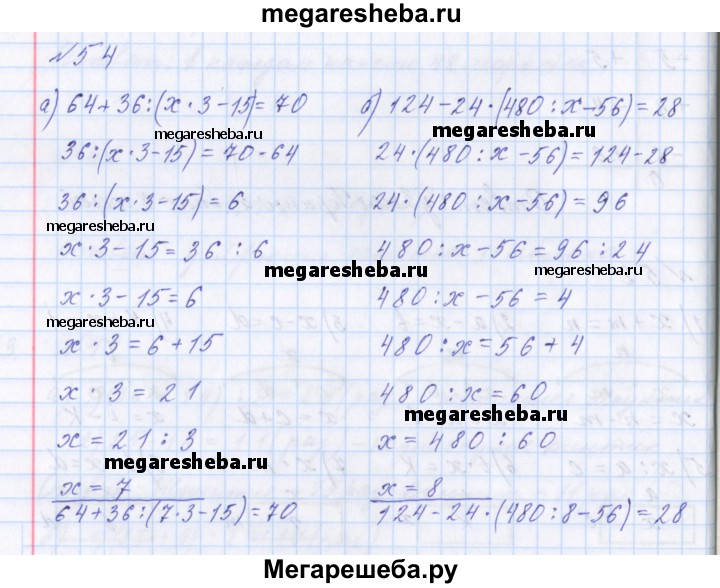 megaresheba.ru
№54
а) 64+36:(x·3-15)=70
36:(x·3-15)=70-64
36:(x·3-15)=6
x·3-15=36:6
x·3-15=6
x·3=6+15
x·3=21
x=21:3
x=7
64+36:(7·3-15)=70
б) 124-24·(480:x-56)=28
24·(480:x-56)=124-28
24·(480:x-56)=96
480:x-56=96:24
480:x-56=4
480:x=56+4
480:x=60
x=480:60
x=8
124-24·(480:8-56)=28
megaresheba.ru
megaresheba.ru
megaresheba.ru
megaresheba.ru
megaresheba.ru
megaresheba.ru
megaresheba.ru
megaresheba.ru
megaresheba.ru
Мегарешеба.ру